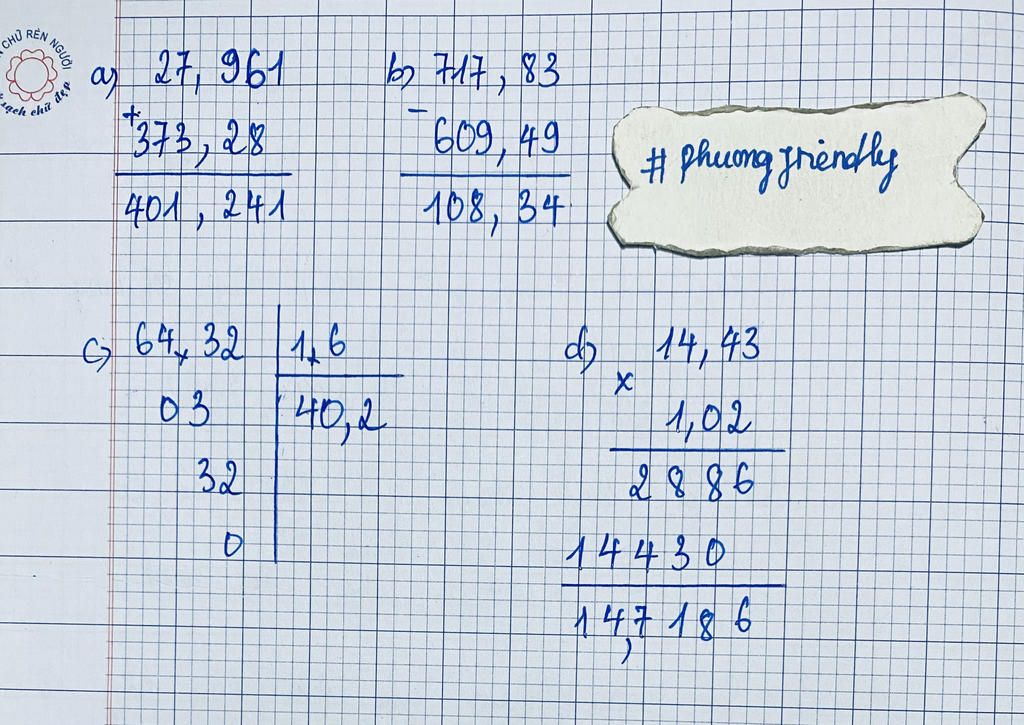 CHỮ RÈN NGƯỜI
sạch chữ đẹp
a) 27, 961
+
373, 28
401, 241
b) 717, 83
-
609, 49
108, 34
# phuong friendly
c) 64, 32 | 1, 6
03 | 40, 2
32
0
d) 14, 43
x
1, 02
2 8 8 6
1 4 4 3 0
1 4, 7 1 8 6